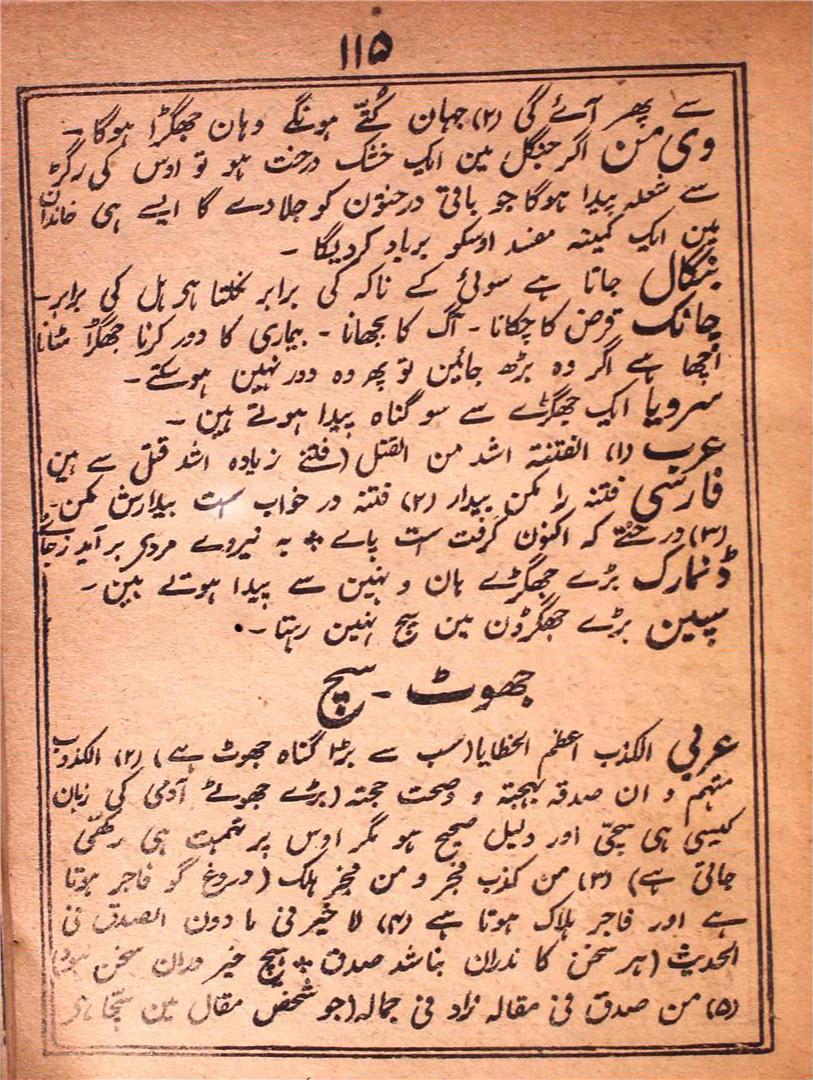 ۱۱۵
سے پھر آئے گی (۲) جہان کُتّے ہونگے وہان جھگڑا ہوگا ۔
وی من اگر جنگل مین ایک خشک درخت ہو تو اوس کی رگڑ
سے شعلہ پیدا ہوگا جو باقی درختون کو جلا دے گا ایسے ہی خاندان
مین ایک کمینہ مفسد اوسکو برباد کر دیگا ۔
بنگال جاتا ہے سوئی کے ناکہ کی برابر نکلتا ہی ہل کی برابر۔
چانک قرض کا چکانا ۔ آگ کا بجھانا ۔ بیماری کا دور کرنا جھگڑا مٹانا
اچھا ہے اگر وہ بڑھ جائین تو پھر وہ دور نہین ہو سکتے ۔
سرویا ایک جھگڑے سے سو گناہ پیدا ہوتے ہین ۔
عرب (۱) الفتنۃ اشد من القتل (فتنے زیادہ اشد قتل سے ہین
فارسی فتنہ را مکن بیدار (۲) فتنہ در خواب ست بیدارش مکن ۔
(۳) درختے کہ اکنون گرفت ست پاے ٭ بہ نیروے مردی بر آید زجاے
ڈنمارک بڑے جھگڑے ہان و نہین سے پیدا ہوتے ہین ۔
سپین بڑے جھگڑون مین سچ نہین رہتا ۔
جھوٹ ۔ سچ
عربی الکذب اعظم الخطایا (سب سے بڑا گناہ جھوٹ ہے) (۲) الکذوب
متہم و ان صدقہ لہجتہ و وضحت حجتہ (بڑے جھوٹے آدمی کی زبان
کیسی ہی سچی اور دلیل صحیح ہو مگر اوس پر تہمت ہی رکھی
جاتی ہے) (۳) من کذب فجر و من فجر ہلک (دروغ گو فاجر ہوتا
ہے اور فاجر ہلاک ہوتا ہے (۴) لا خیر فی ما دون الصدق فی
الحدیث (ہر سخن کاندران نباشد صدق ٭ ہیچ خیر دران سخن نبود)
(۵) من صدق فی مقالہ زاد فی جمالہ (جو شخص مقال مین سچا ہی